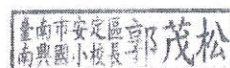 臺南市安定區
南興國小校長
郭茂松